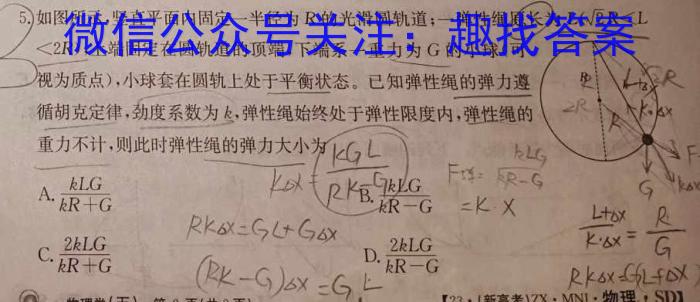 5. 如图所示,竖直平面内固定一半径为 R 的光滑圆轨道;一弹性绳原长为 L
微信公众号关注：趣找答案
<2R 端固定在圆轨道的顶端,下端系一重力为 G 的小球(可
视为质点),小球套在圆轨上处于平衡状态。已知弹性绳的弹力遵
循胡克定律,劲度系数为 k,弹性绳始终处于弹性限度内,弹性绳的
重力不计,则此时弹性绳的弹力大小为
A. kLG/(kR+G)
B. kLG/(kR−G)
C. 2kLG/(kR+G)
D. 2kLG/(kR−G)
kΔx = kGL/(Rk−G)
F弹 = kLG/(kR−G)
=K·X
RkΔx=GL+GΔx
(Rk−G)Δx=GL
(L+Δx)/(k·Δx) = R/G
RkΔx=GL+GΔx
R
2R
R
F
G
kΔx
【23·(新高考)ZX·MNJ·物理·SD】